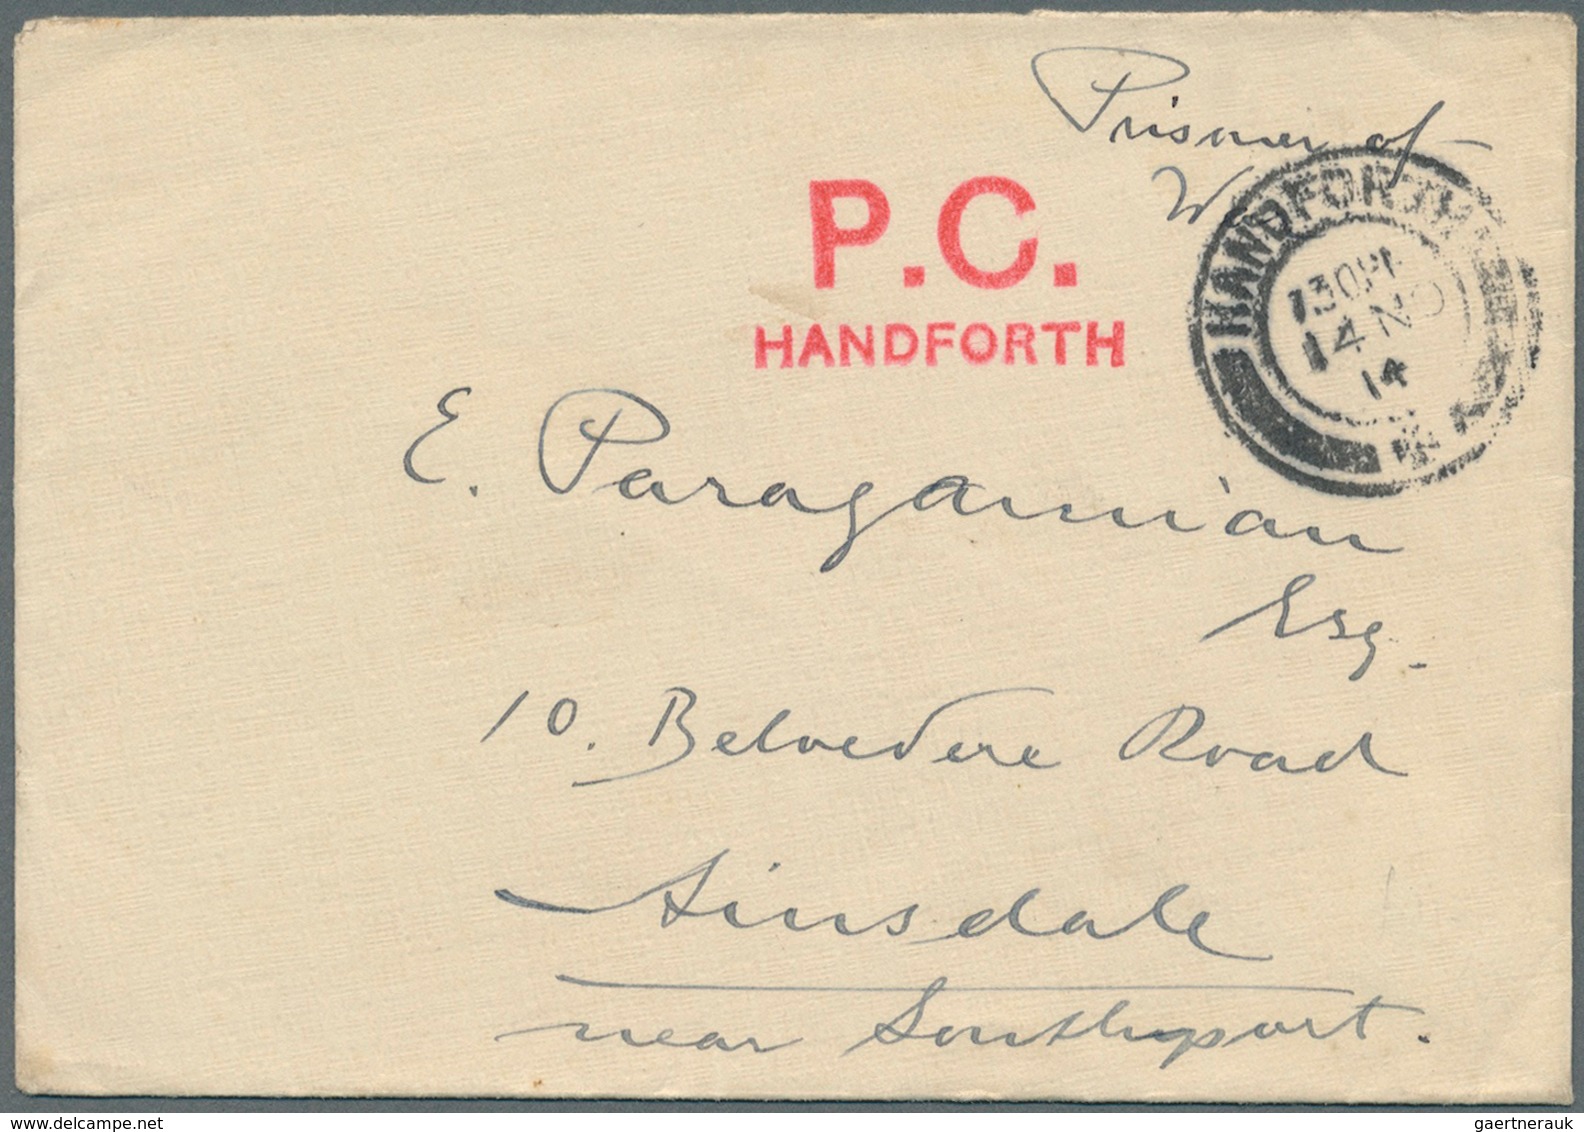 Prisoner of
W
P.C.
HANDFORTH
HANDFORTH
730PM
14 NO
14
E. Paragamian
Esq.
10. Belvedere Road
Ainsdale
near Southport.
gaertnerauk